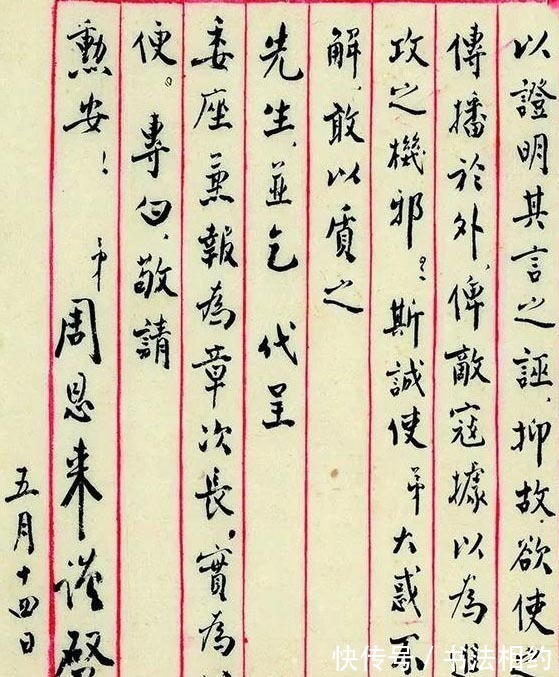 以證明其言之誣，抑故欲使之
傳播於外，俾敵寇據以為進
攻之機邪？斯誠使弟大惑不
解，敢以質之
先生，並乞代呈
委座，兼報為章次長，實為
便。專白，敬請
勳安！
弟周恩来謹啓
五月十四日
快传号/书法相约